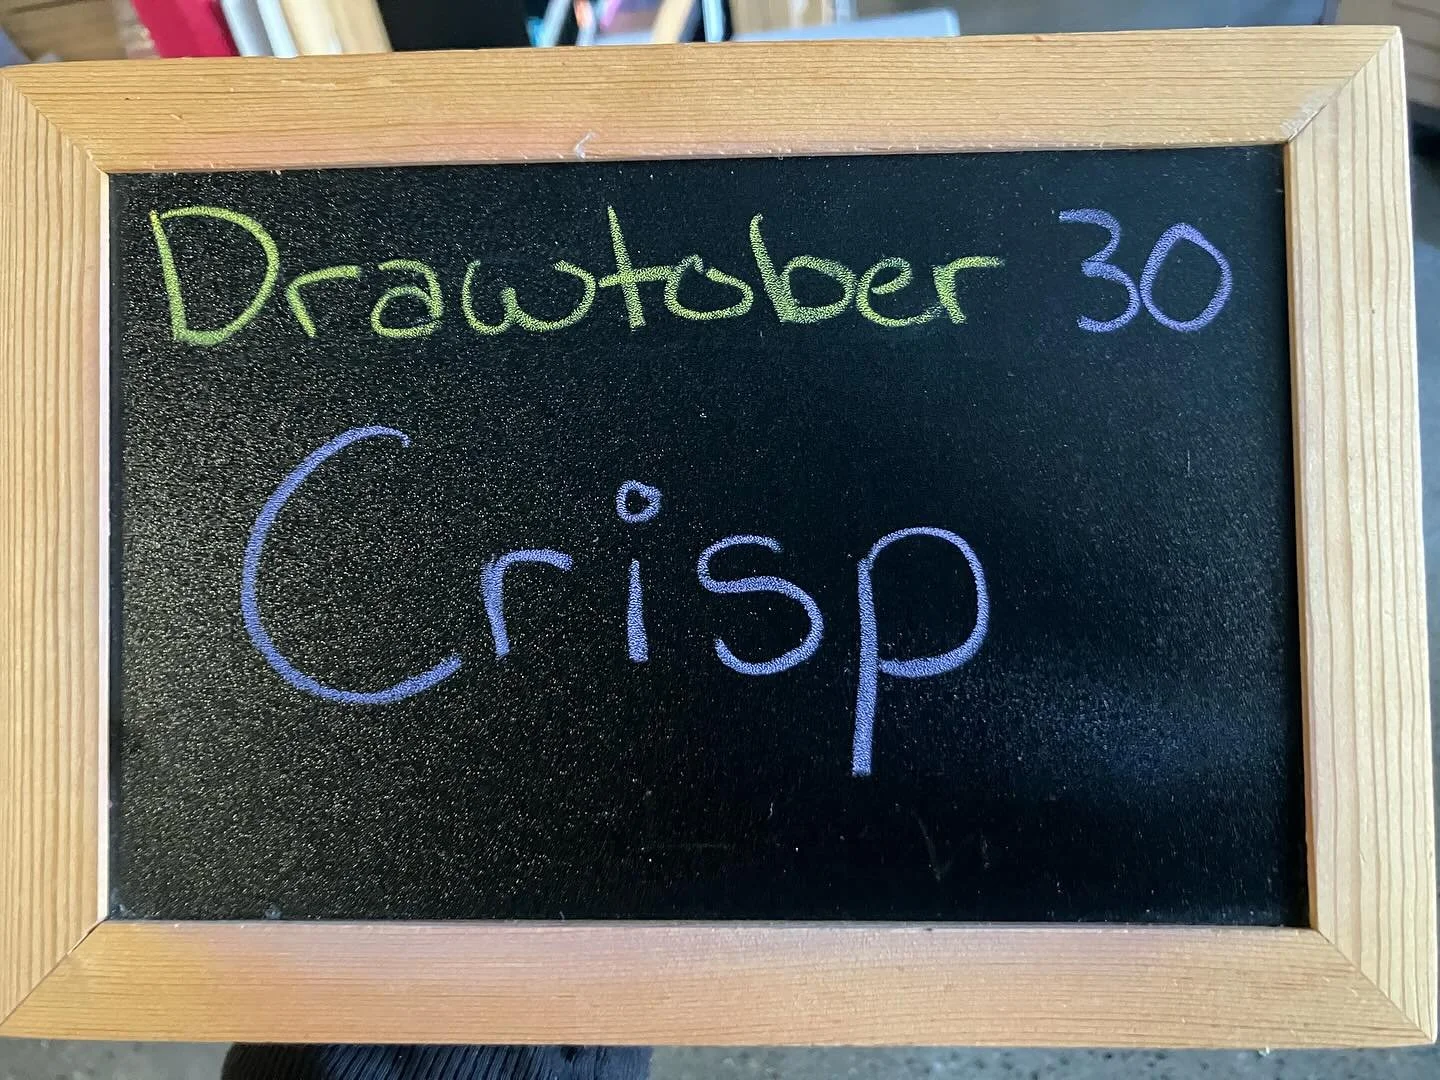 Drawtober 30
Crisp